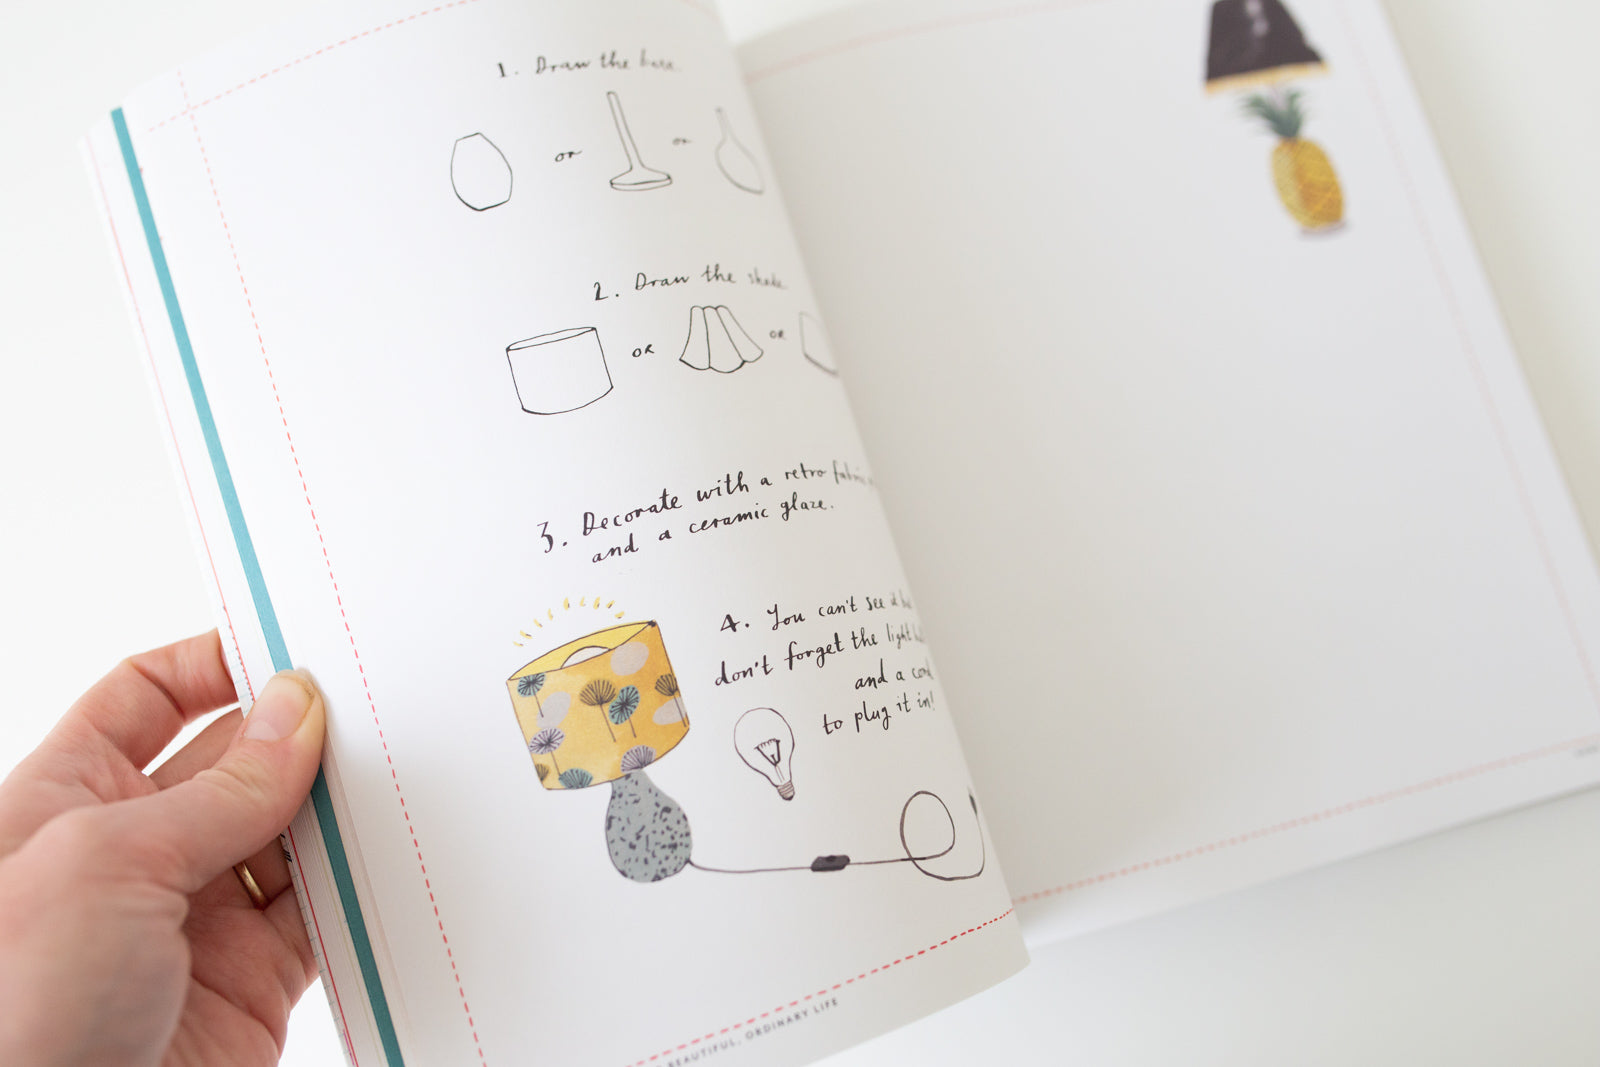 1. Draw the base.
or
or
2. Draw the shade.
OR
OR
3. Decorate with a retro fabric
and a ceramic glaze.
4. You can't see it
don't forget the light
and a cord
to plug it in!
BEAUTIFUL, ORDINARY LIFE